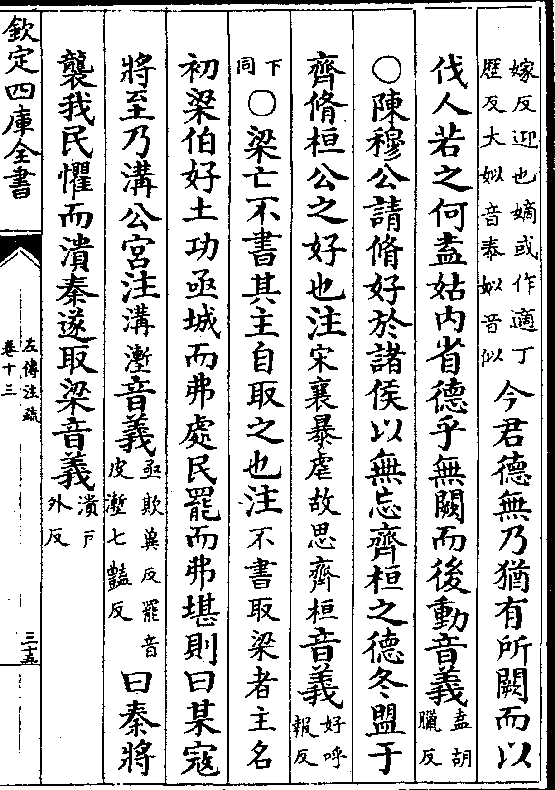 嫁反迎也嫡或作適丁歴反大姒音泰姒音似今君德無乃猶有所闕而以
伐人若之何盍姑内省德乎無闕而後動音義盍胡臘反
○陳穆公請脩好於諸侯以無忘齊桓之德冬盟于
齊脩桓公之好也注宋襄暴虐故思齊桓音義好呼報反
下同○梁亡不書其主自取之也注不書取梁者主名
初梁伯好土功亟城而弗處民罷而弗堪則曰某寇
將至乃溝公宮注溝塹音義亟欺冀反罷音皮塹七豔反曰秦將
襲我民懼而潰秦遂取梁音義潰戶外反
欽定四庫全書
左傳注疏
卷十三
三十五